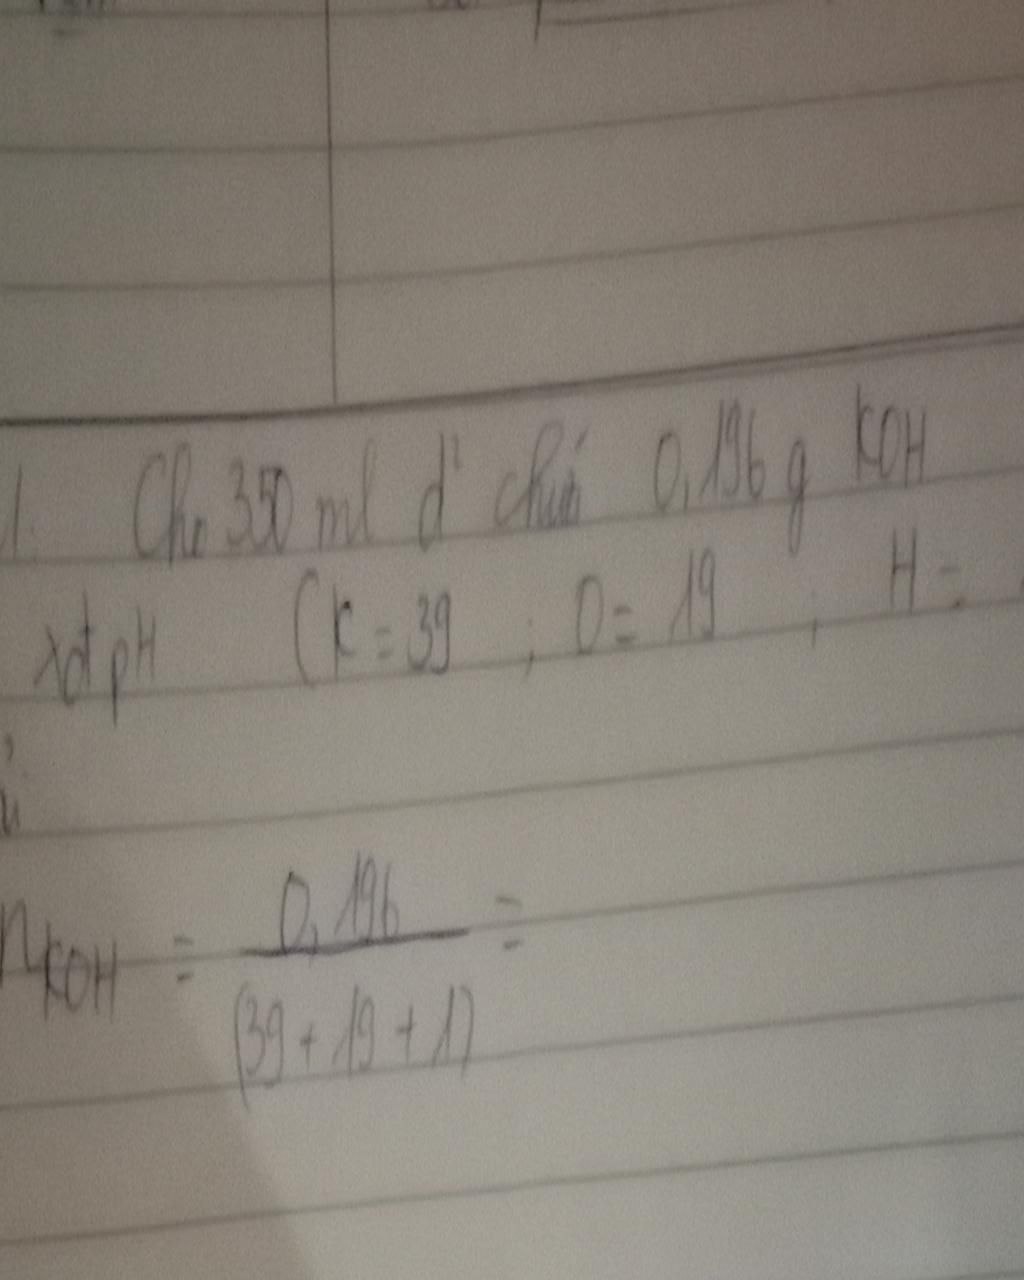 1. Cho 350 ml d² chứa 0,196 g KOH
xđ pH (K = 39 ; O = 19 ; H =
n KOH = 0,196 / (39 + 19 + 1) =